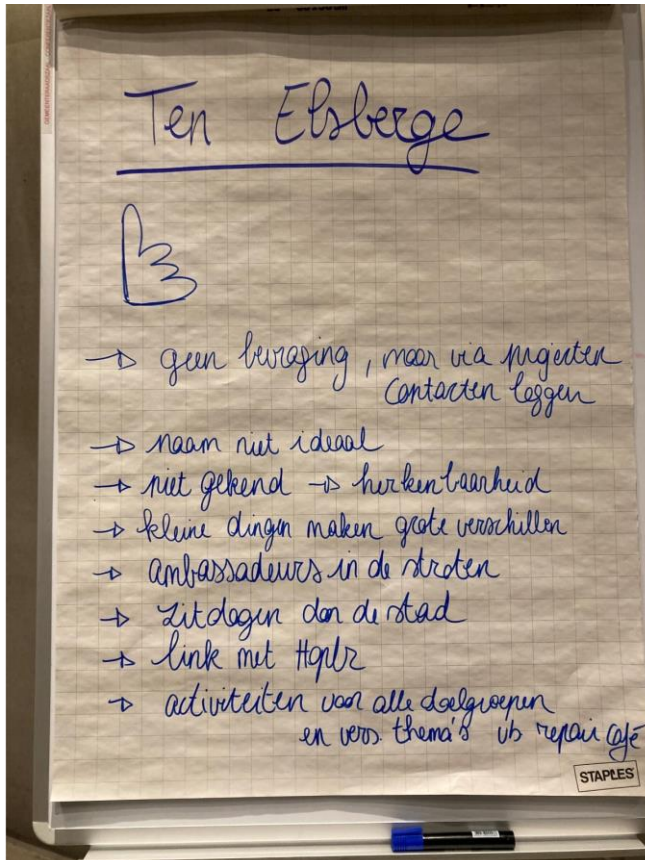 Ten Elsberge
→ geen bevraging, maar via projecten
contacten leggen
→ naam niet ideaal
→ niet gekend → herkenbaarheid
→ kleine dingen maken grote verschillen
→ ambassadeurs in de straten
→ zitdagen van de stad
→ link met
→ activiteiten voor alle doelgroepen
en vers. thema's vb repair café
STAPLES